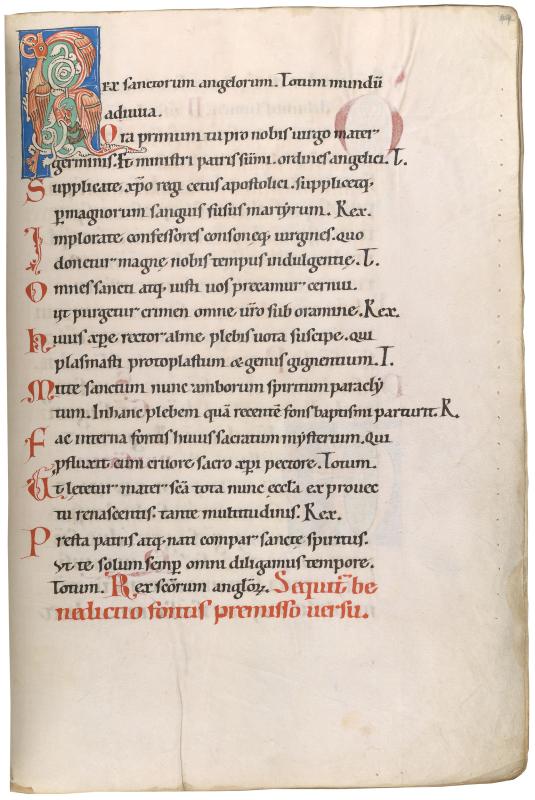 Rex sanctorum angelorum. Totum mundū
adiuua.
Ora primum tu pro nobis uirgo mater
germinis. Et ministri patris sūmi. ordines angelici. T.
Supplicate xp̄o regi cetus apostolici. supplicetq;
p̄magnorum sanguis fusus martyrum. Rex.
Implorate confessores consoneq; uirgines. quo
donetur magne nobis tempus indulgentie. T.
Omnes sancti atq; iusti uos precamur cernui.
ut purgetur crimen omne ur̄o sub oramine. Rex.
Huius xp̄e rector alme plebis uota suscipe. qui
plasmasti protoplastum & genus gignentium. T.
Mitte sanctum nunc amborum spiritum paracly
tum. In hanc plebem quā recentē fons baptismi parturit. R.
Fac interna fontis huius sacratum mysterium. Qui
p̄fluxit cum cruore sacro xp̄i pectore. Totum.
Ut letetur mater sc̄a tota nunc eccl̄a ex profec
tu renascentis. tante multitudinis. Rex.
Presta patris atq; nati compar sancte spiritus.
Ut te solum semp̄ omni diligamus tempore.
Totum. Rex sc̄orum anglo̅ꝝ. Sequit̄ be
nedictio fontis premisso uersu.